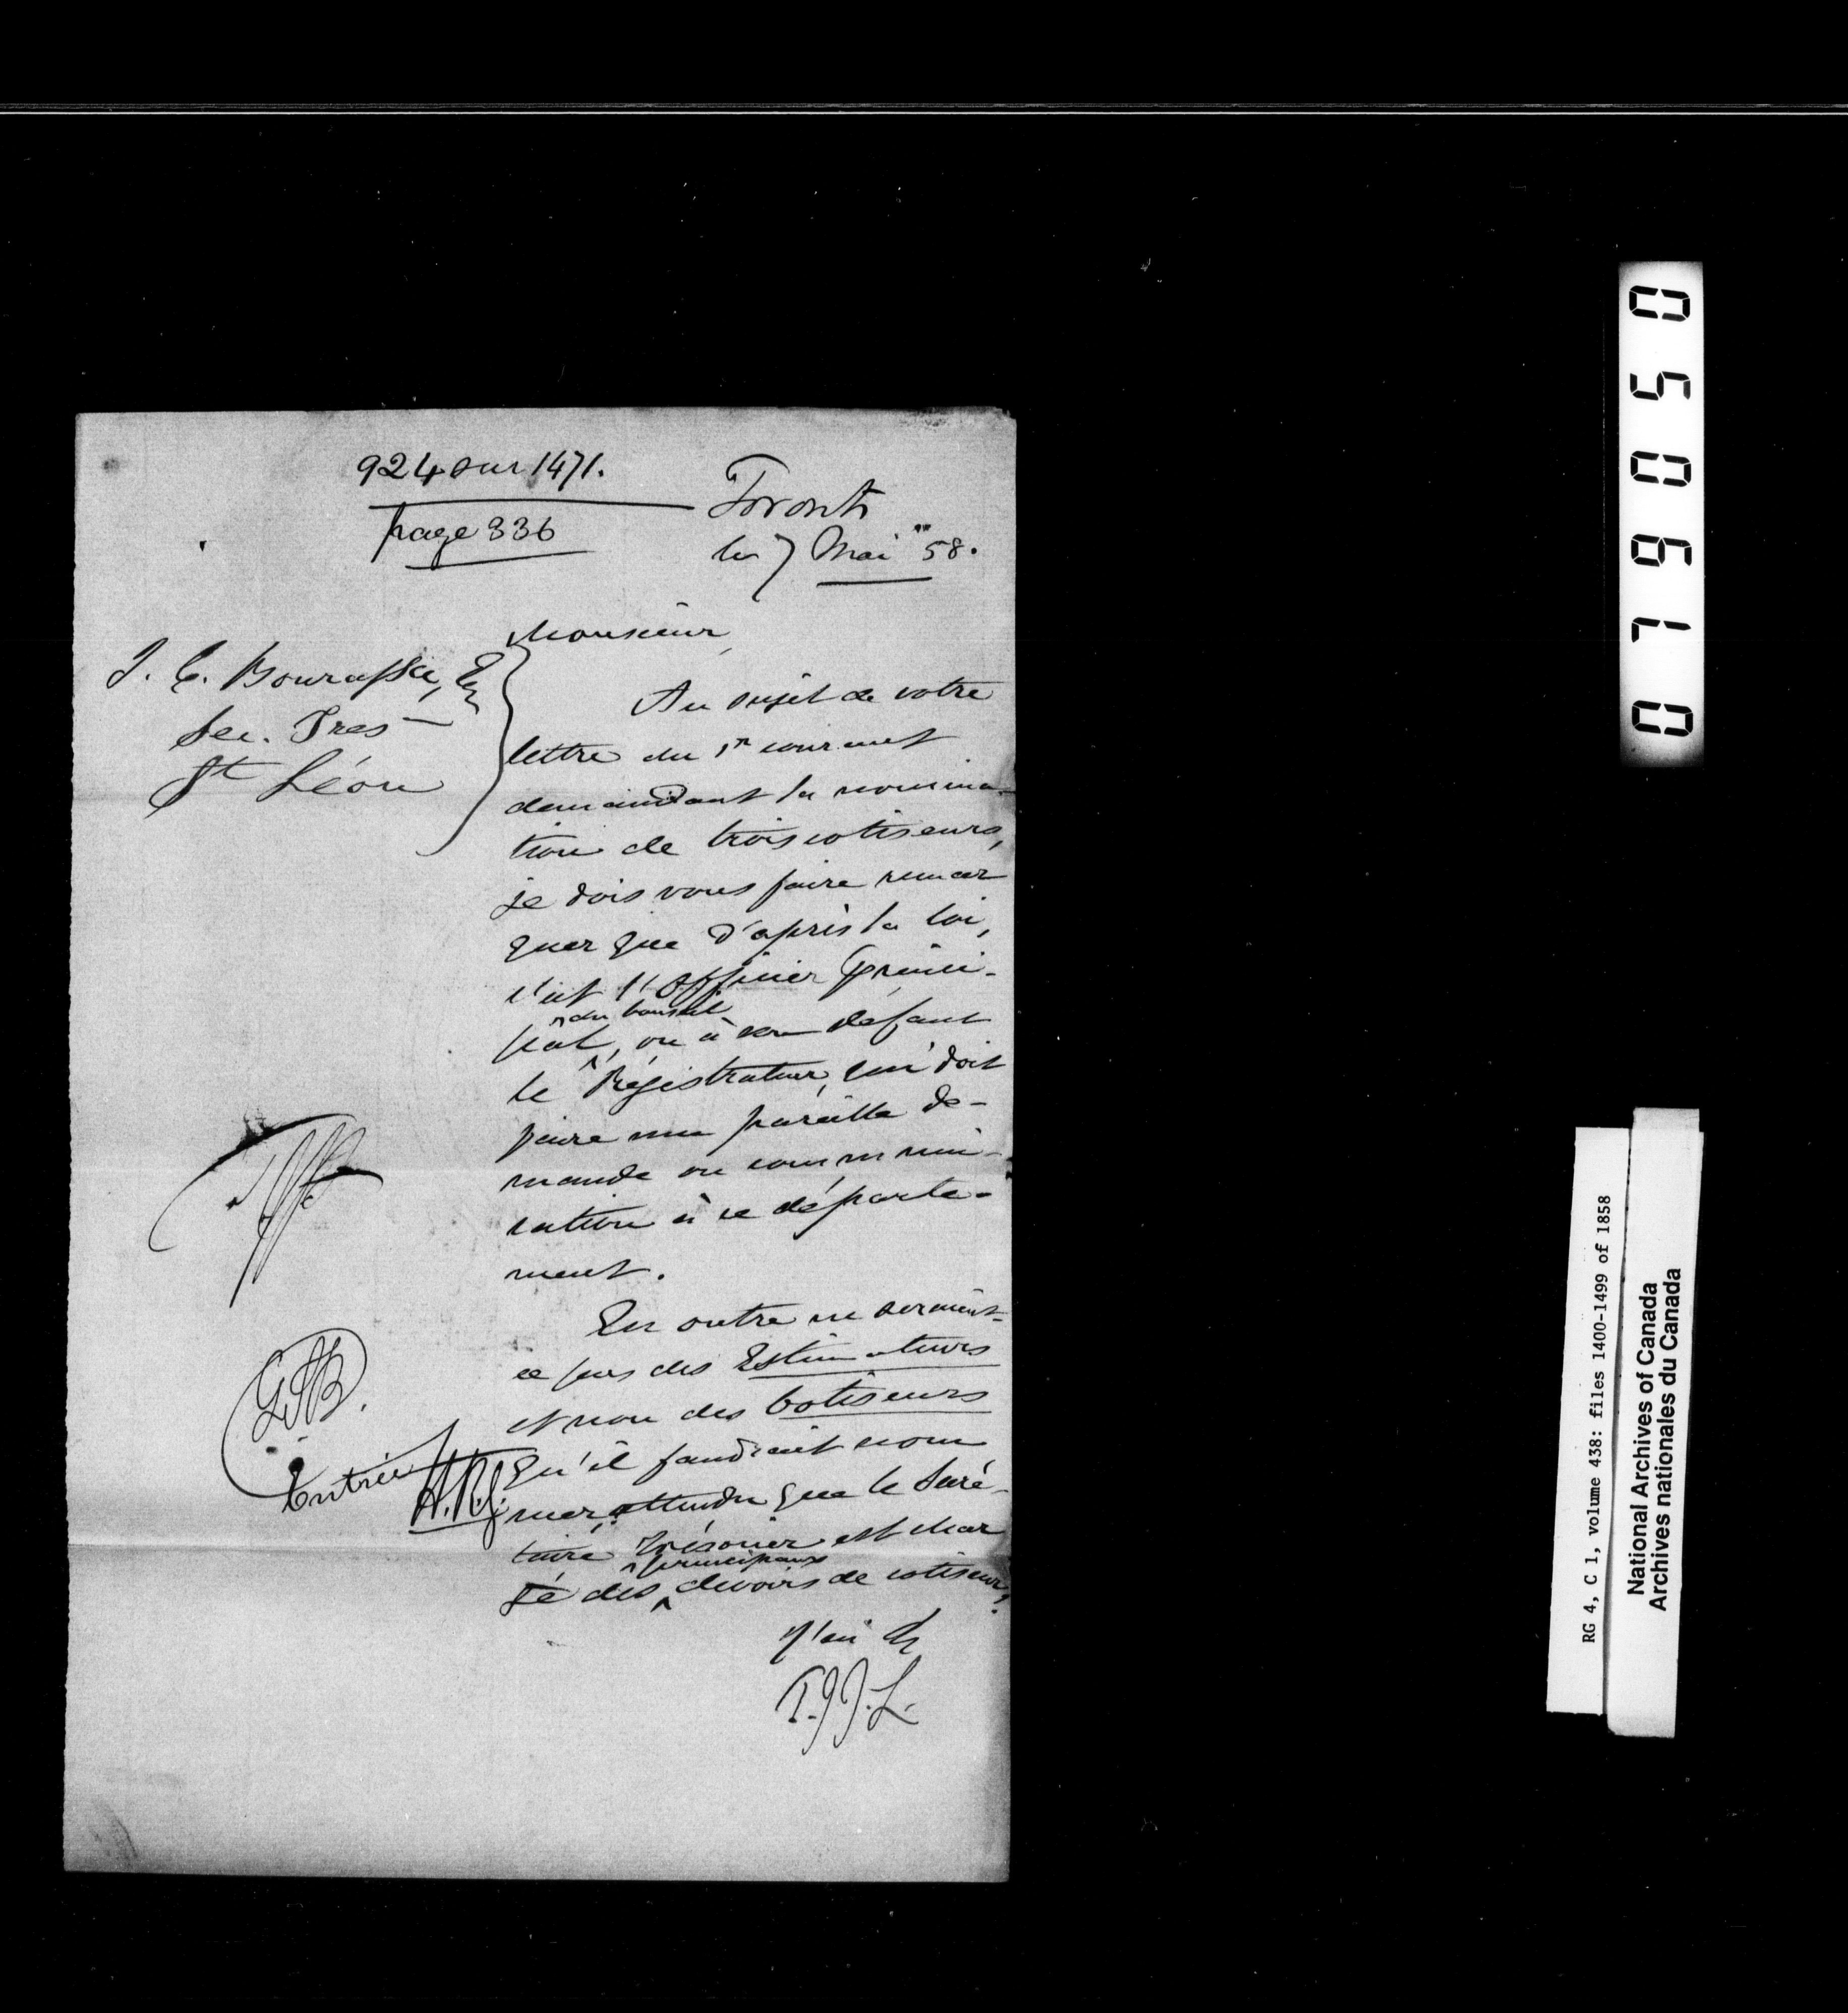 924 sur 1471.
page 336
Toronto
le 7 Mai "58.
J. C. Bourassa, Er
Sec. Tres
St Léon
Monsieur,
Au sujet de votre
lettre du 1er courant
demandant la nomina-
tion de trois cotiseurs,
je dois vous faire remar
quer que d'après la loi,
c'est l'officier princi-
pal, ou à son défaut
du Conseil
le Régistrateur, qui doit
faire une pareille de-
mande ou communi-
cation à ce départe-
ment.
En outre ne seraient-
ce pas des Estimateurs
et non des Cotiseurs
qu'il faudrait nom
mer, attendu que le Secré-
taire Trésorier est char
gé des principaux devoirs de cotiseurs?
J'ai &c
T.J.J.L.
GSB.
Entrée
H.R.J.
0 7 9 0 5 0
RG 4, C 1, volume 438: files 1400-1499 of 1858
National Archives of Canada
Archives nationales du Canada